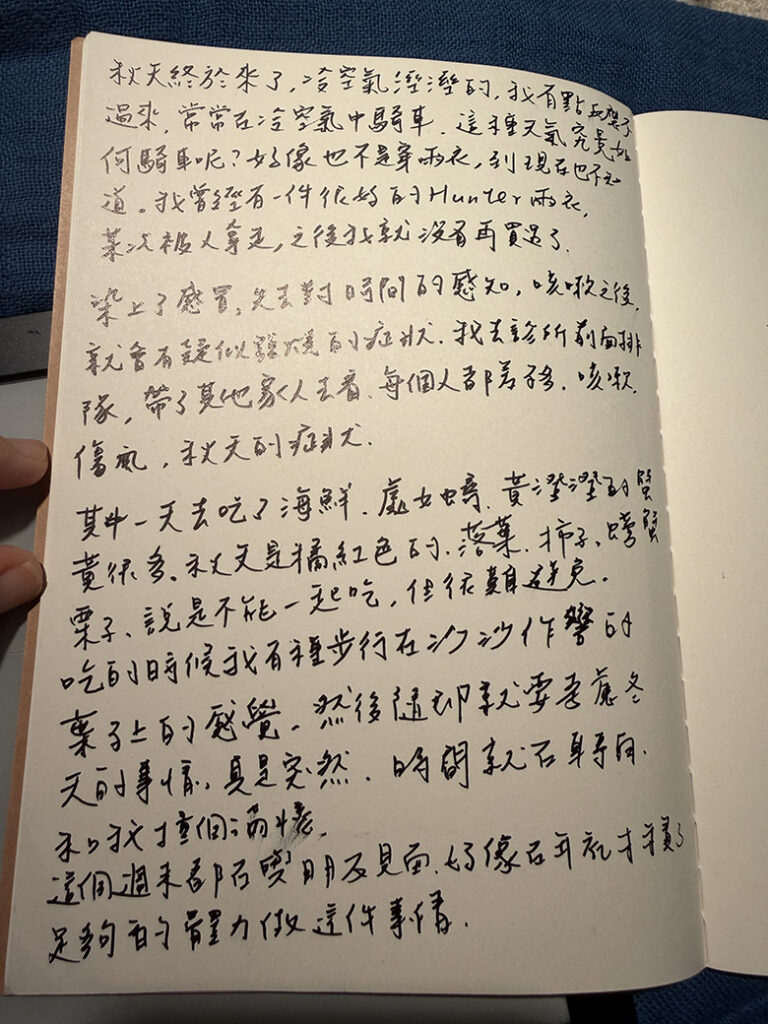 秋天終於來了，冷空氣溼溼的，我有點反應不
過來，常常在冷空氣中騎車．這種天氣究竟如
何騎車呢？好像也不是穿雨衣，到現在也不知
道。我曾經有一件很好的Hunter雨衣，
某次被人拿走，之後我就沒有再買過了．
染上了感冒，失去對時間的感知，咳嗽之後，
就會有疑似發燒的症狀．我去診所前面排
隊，帶了其他家人去看．每個人都差不多．咳嗽，
傷風，秋天的症狀．
其中一天去吃了海鮮．處女蟳．黃澄澄的蟹
黃很多。秋天是橘紅色的．落葉．柿子、螃蟹
栗子、說是不能一起吃，但很難避免。
吃的時候我有種步行在沙沙作響的
葉子上的感覺．然後隨即就要考慮冬
天的事情，真是突然．時間就在身旁
和我撞個滿懷．
這個週末都在與朋友見面．好像在年底才積了
足夠的能量力做這件事情．